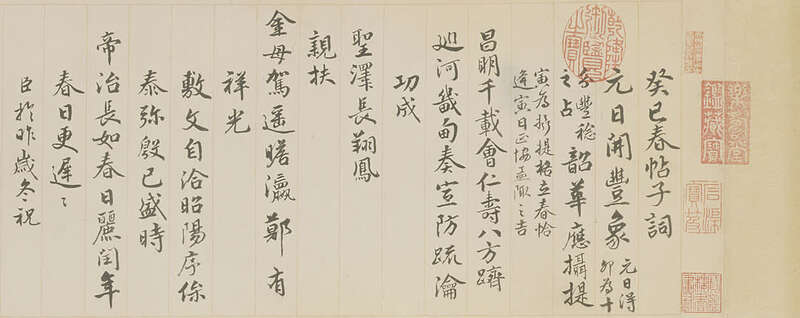 癸巳春帖子詞
元日開豐象
元日得
卯為十
分豐稔
之占
韶華應攝提
寅為攝提格立春恰
逢寅日正協孟陬之吉
昌明千載會仁壽八方躋
巡河畿甸奏宣防疏瀹
功成
聖澤長翔鳳
親扶
金母駕遥瞻瀛鄚有
祥光
敷文自洽昭陽序保
泰弥殷已盛時
帝治長如春日麗閏年
春日更遲〻
臣於昨歲冬祝
乾隆御覽之寶
石渠寶笈